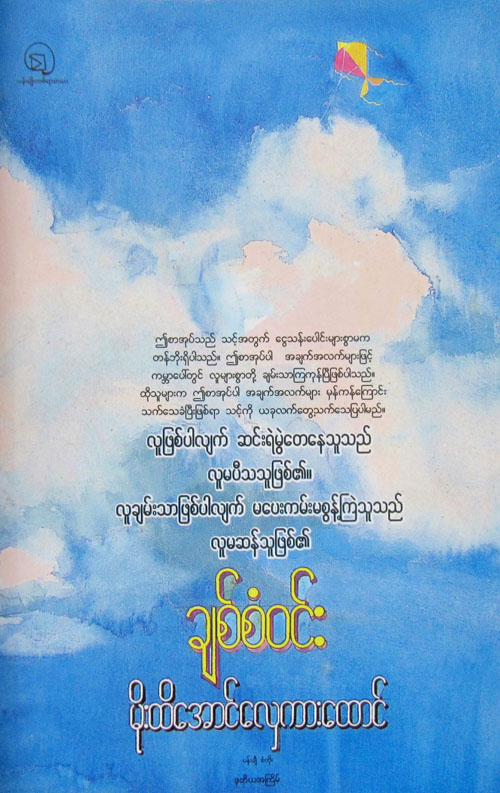 ပန်းမျိုးတစ်ရာစာပေ
ဤစာအုပ်သည် သင့်အတွက် ငွေသန်းပေါင်းများစွာမက
တန်ဘိုးရှိပါသည်။ ဤစာအုပ်ပါ အချက်အလက်များဖြင့်
ကမ္ဘာပေါ်တွင် လူများစွာတို့ ချမ်းသာကြကုန်ပြီဖြစ်ပါသည်။
ထိုသူများက ဤစာအုပ်ပါ အချက်အလက်များ မှန်ကန်ကြောင်း
သက်သေခံပြီးဖြစ်ရာ သင့်ကို ယခုလက်တွေ့သက်သေပြပါမည်။
လူဖြစ်ပါလျက် ဆင်းရဲမွဲတေနေသူသည်
လူမပီသသူဖြစ်၏။
လူချမ်းသာဖြစ်ပါလျက် မပေးကမ်းမစွန့်ကြဲသူသည်
လူမဆန်သူဖြစ်၏
ချစ်စံဝင်း
မိုးထိအောင်လှေကားထောင်
ပန်းချီ စံတိုး
ဒုတိယအကြိမ်